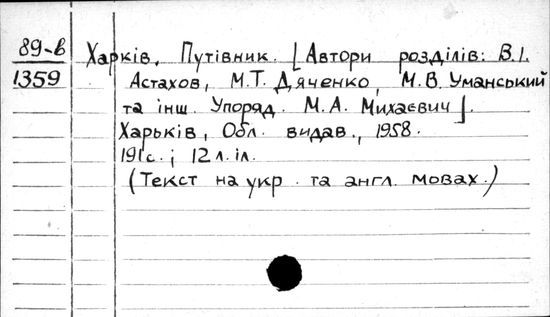 89-в Харків. Путівник. [Автори розділів: В.І.
1359 Астахов, М.Т. Дяченко, М.В. Уманський
та інш. Упоряд. М.А. Михаєвич].
Харьків, Обл. видав., 1958.
191с.; 12 л. іл.
(Текст на укр. та англ. мовах.)